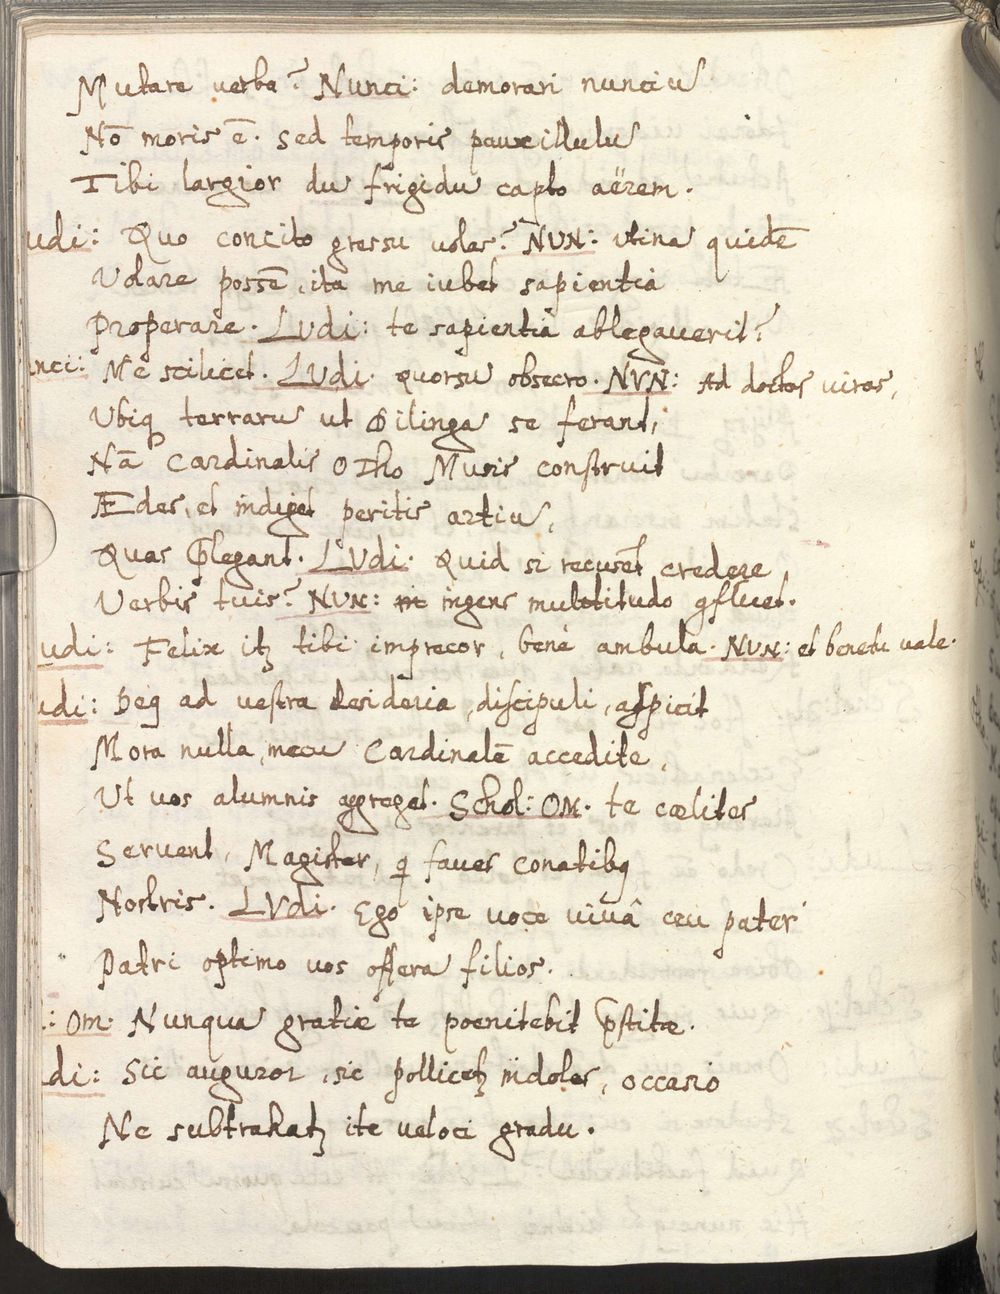 Mutare verba? Nunci: demorari nunciū
Nō moris ē. Sed temporis pauxillulū
Tibi largior dū frigidū capto aërem.
udi: Quo concito gressu volas? NUN: utinā quidē
Volare possē, ita me iubet sapientia
Properare. LVdi: te sapientiā ablegaverit?
unci: Me scilicet. LVdi. quorsū obsecro. NVN: Ad doctos viros,
Ubiq terrarū ut Dilingā se ferant,
Nā Cardinalis OTho Musis construit
ÆDes, et indiget peritis artiū,
Quas Plegant. LVdi. Quid si recuset credere
Verbis tuis? NUN: ingens multitudo gfluet.
udi: Felix itꝫ tibi imprecor, bene ambula. NUN: et benetu vale.
udi: Deꝰ ad vestra desideria, discipuli, aspicit
Mora nulla, mecū Cardinalē accedite,
Ut vos alumnis aggreget. Schol: OM. te cælites
Servent, Magister, q faves conatibꝰ
Nostris. LVdi. Ego ipse voce vivâ ceu pater
Patri optimo vos offerā filios.
: OM. Nunquā gratiæ te poenitebit pstitæ.
di: Sic auguror, sic pollicetꝫ indoles, occasio
Ne subtrahatꝫ ite veloci gradu.